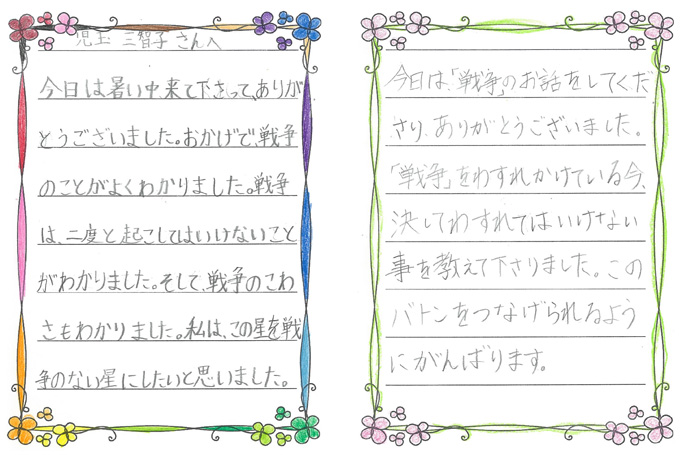 児玉 三智子 さんへ
今日は暑い中、来て下さって、ありが
とうございました。おかげで、戦争
のことがよくわかりました。戦争
は、二度と起こしてはいけないこと
がわかりました。そして、戦争のこわ
さもわかりました。私は、この星を戦
争のない星にしたいと思いました。
今日は、「戦争」のお話をしてくだ
さり、ありがとうございました。
「戦争」をわすれかけている今、
決してわすれてはいけない
事を教えて下さりました。この
バトンをつなげられるよう
にがんばります。